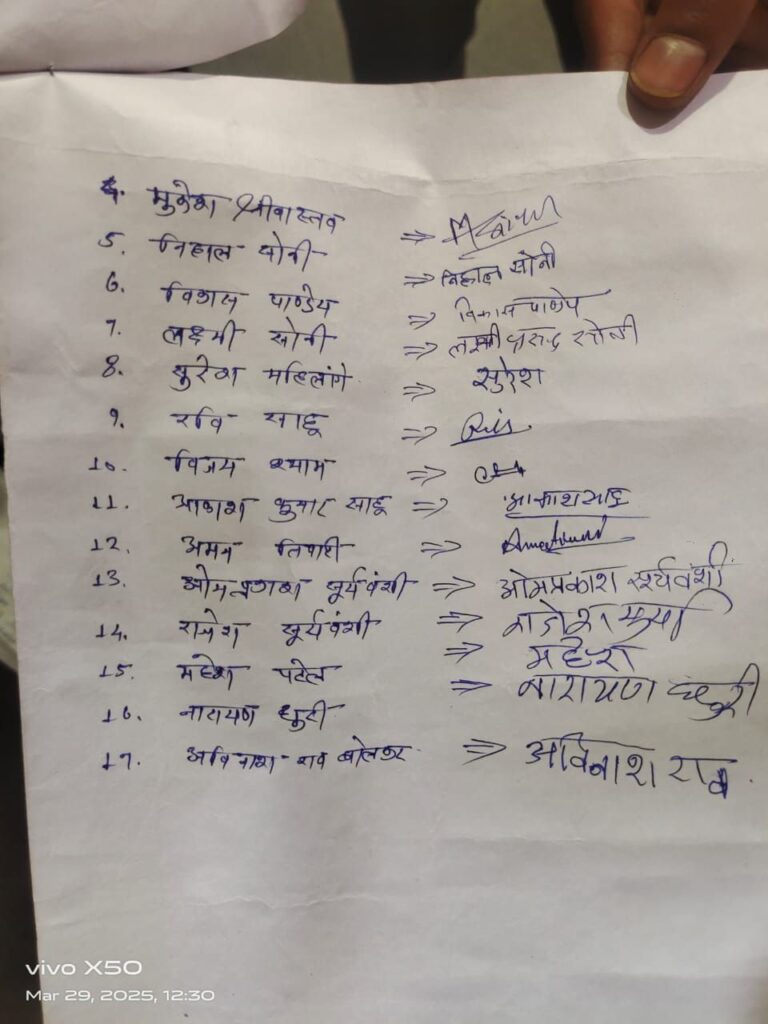 4. मुकेश श्रीवास्तव ⇒
5. निहाल सोनी ⇒ निहाल सोनी
6. विकास पाण्डेय ⇒ विकास पाण्डेय
7. लक्ष्मी सोनी ⇒ लक्ष्मी सोनी
8. सुरेश महिलांगे ⇒ सुरेश
9. रवि साहू ⇒
10. विजय श्याम ⇒
11. आकाश कुमार साहू ⇒ आकाश साहू
12. अमन तिवारी ⇒
13. ओमप्रकाश सूर्यवंशी ⇒ ओमप्रकाश सूर्यवंशी
14. राजेश सूर्यवंशी ⇒ राजेश
15. महेश पटेल ⇒ महेश
16. नारायण धुरी ⇒ नारायण धुरी
17. अविनाश राव ⇒ अविनाश राव
vivo X50
Mar 29, 2025, 12:30